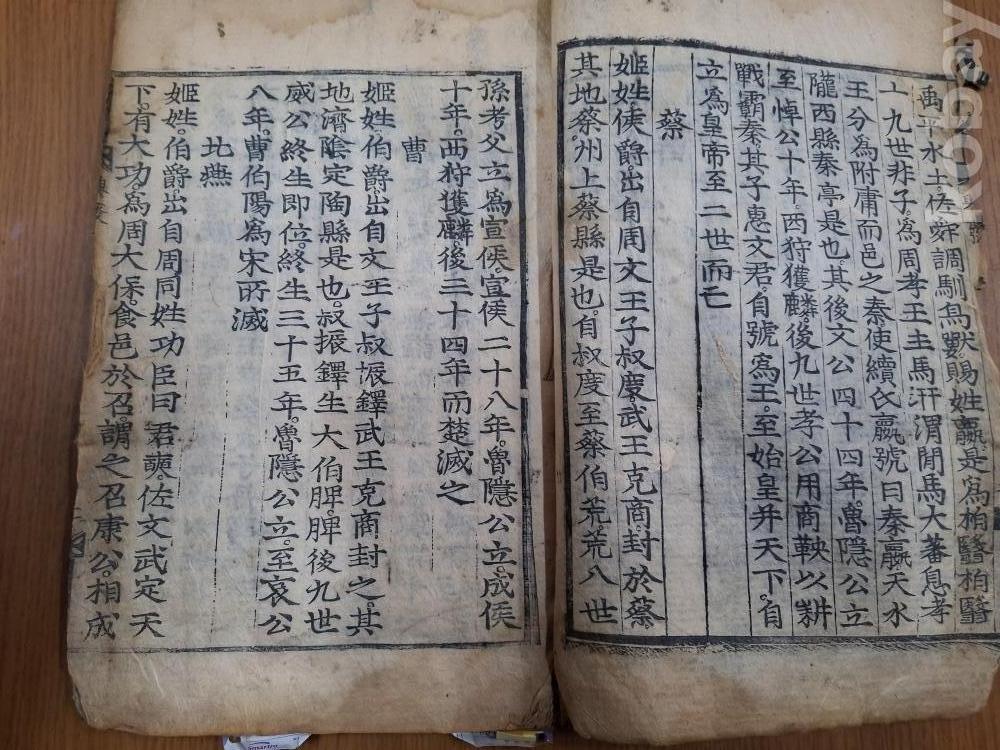 禹平水土佐舜調馴鳥獸賜姓嬴是為栢翳栢翳
十九世非子為周孝王主馬汧渭間馬大蕃息孝
王分為附庸而邑之秦使續氏嬴號曰秦嬴天水
隴西縣秦亭是也其後文公四十四年魯隱公立
至悼公十年西狩獲麟後九世孝公用商鞅以耕
戰霸秦其子惠文君自號為王至始皇并天下自
立為皇帝至二世而亡
蔡
姬姓侯爵出自周文王子叔度武王克商封於蔡
其地蔡州上蔡縣是也自叔度至蔡伯荒荒八世
孫考父立為宣侯宣侯二十八年魯隱公立成侯
十年西狩獲麟後三十四年而楚滅之
曹
姬姓伯爵出自文王子叔振鐸武王克商封之其
地濟陰定陶縣是也叔振鐸生大伯脾脾後九世
威公終生即位終生三十五年魯隱公立至哀公
八年曹伯陽為宋所滅
北燕
姬姓伯爵出自周同姓功臣曰君奭佐文武定天
下有大功為周大保食邑於召謂之召康公相成